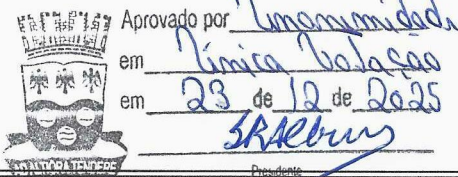 Aprovado por Unanimidade
em Única Votação
em 23 de 12 de 2025
Presidente
ALTIORA TENDERE